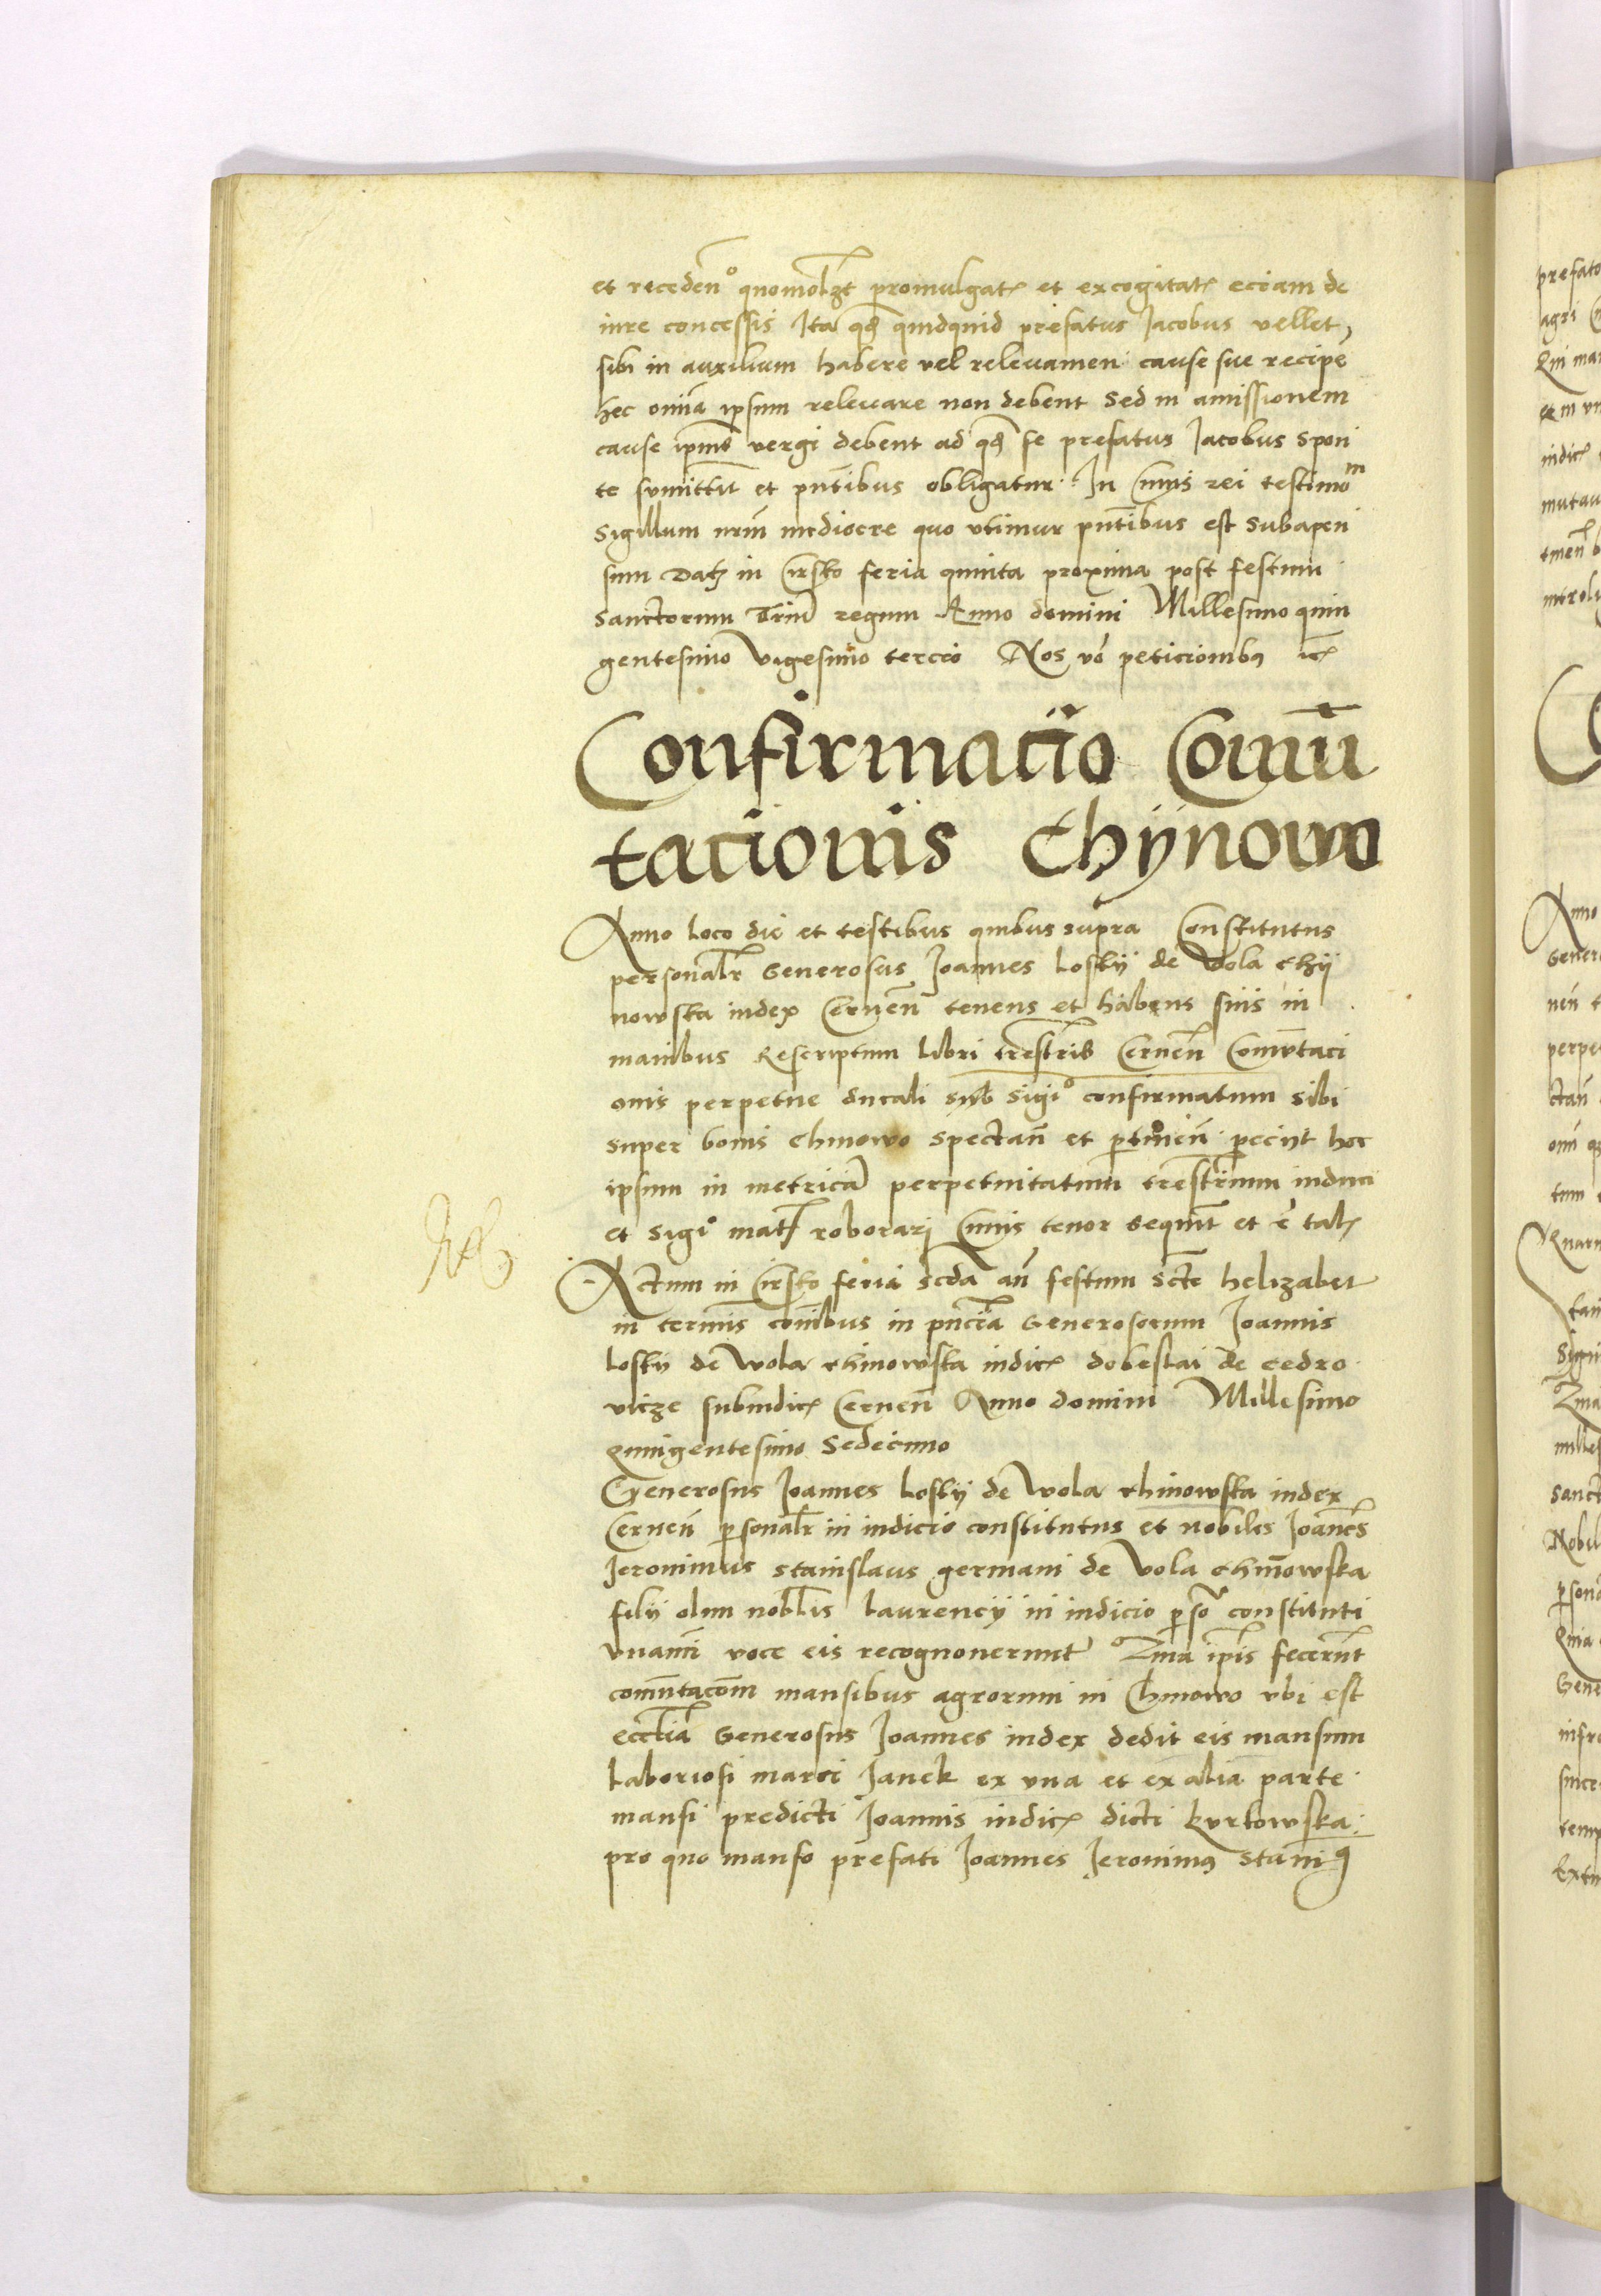 et receden° quomolzt promulgat et excogitat eciam de
iure concessis Ita qd quidquid prefatus Jacobus vellet,
sibi in auxilium habere vel relevamen cause sue recipe
hec omia ipsum relevare non debent sed in amissionem
cause ipius vergi debent ad qd se prefatus Jacobus spon
te sumittit et pntibus obligatur. In Cuius rei testimom
Sigillum nrm mediocre quo utimur pntibus est subapen
sum Dat in Cirsko feria quinta proxima post festum
Sanctorum Trium regum Anno domini Millesimo quin
gentesimo vigesimo tercio Nos vo peticionibus
Confirmacio Comu
tacionis Chÿnowo
Anno loco die et testibus quibus supra Constitutus
personalr Generosus Joannes Loskÿ de Vola chÿ
nowska iudex Cernen tenens et habens suis in
manibus Rescriptum libri trestris Cernen Comutaci
onis perpetue ducali sub sigi° confirmatum sibi
super bonis chinowo spectan et ptinen peciit hoc
ipsum in metrica perpetuitatum trestrium induci
et sigi° mat roborari Cuius tenor sequit et e tal
Actum in Cirsko feria scda an festum scte helizabet
in terminis conibus in pncia Generosorum Joannis
Loskÿ de Wola chinowska iudic dobeslai de cedro
vicze subiudic Cernen Anno domini Millesimo
Quingentesimo Sedecimo
Generosus Joannes Loskÿ de Wola chinowska iudex
Cernen psonalr in iudicio constitutus et nobiles Joanes
Jeronimus Stanislaus germani de Vola chinowska
filÿ olim noblis Laurencÿ in iudicio pso constituti
unanimi voce eis recognoverunt Zma ipis fecerunt
comutacom mansibus agrorum in Chinowo ubi est
ecclia Generosus Joannes iudex dedit eis mansum
Laboriosi marci Janek ex una et ex alia parte
mansi predicti Joannis iudic dicti kurkowska
pro quo manso prefati Joannes Jeronimus Stani